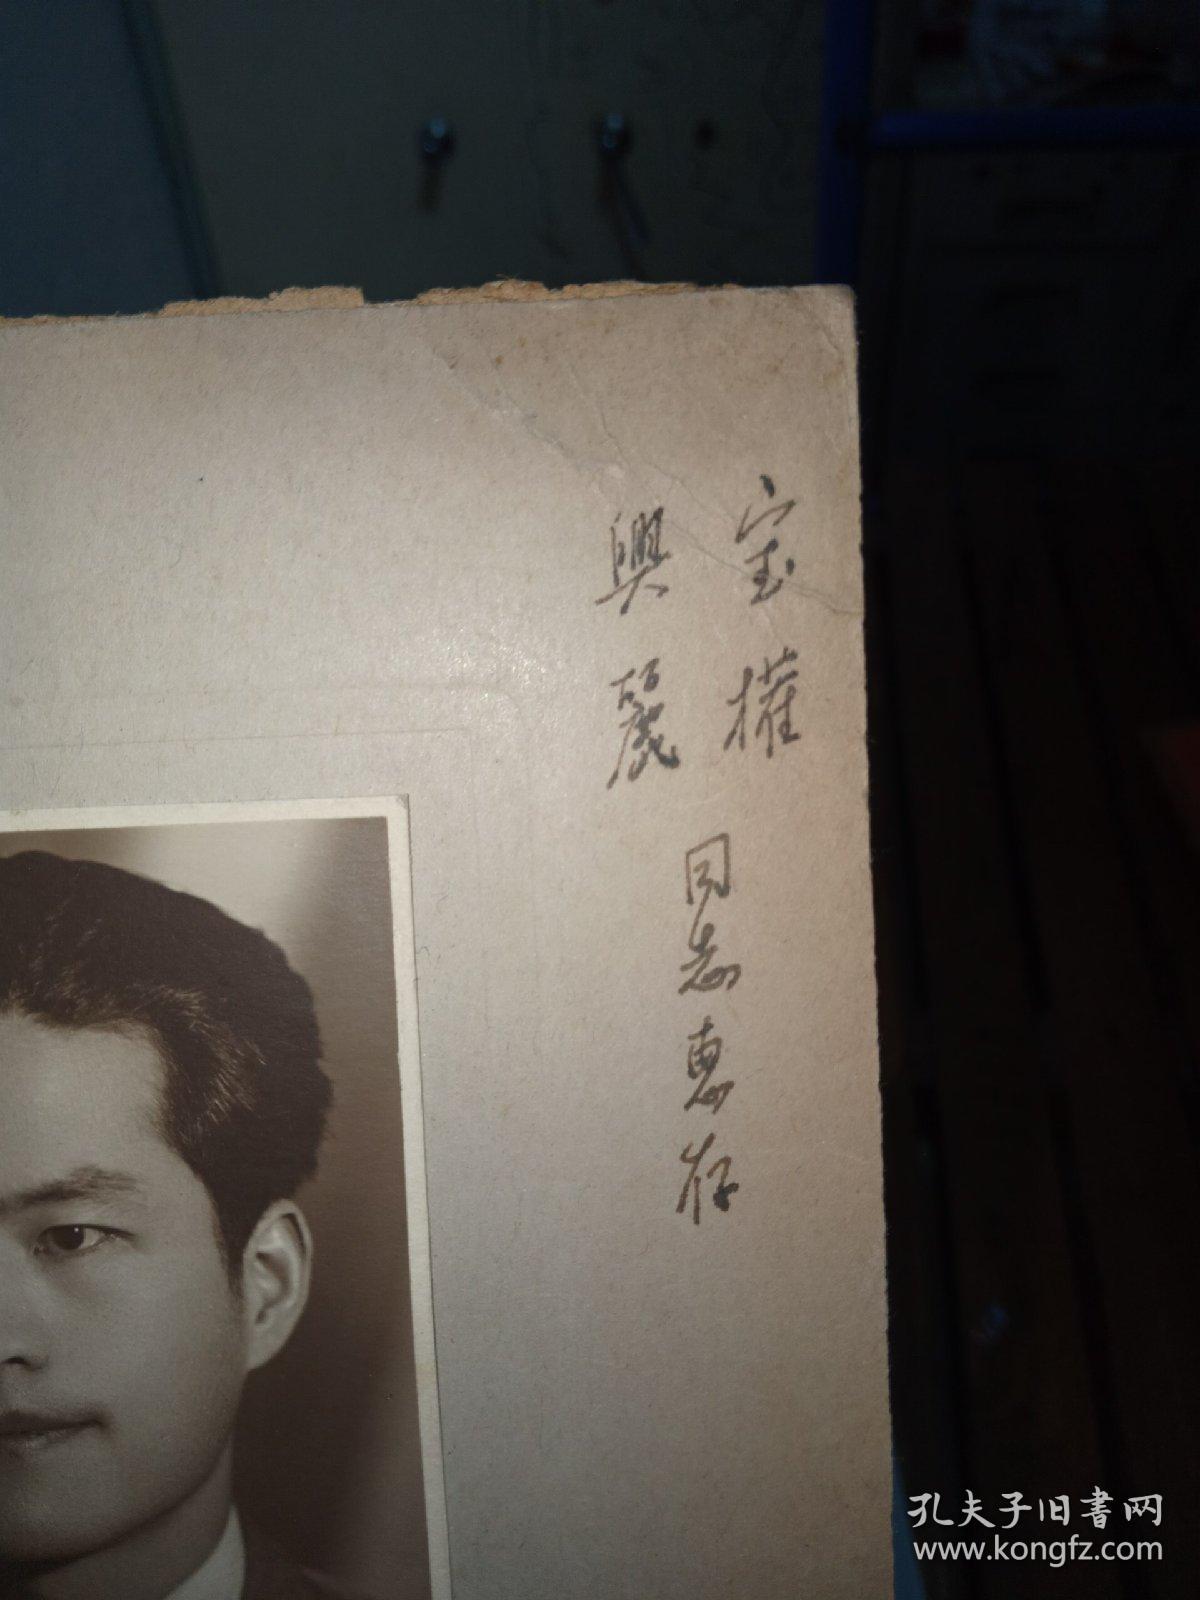 宝權
興麗
同志惠存
孔夫子旧書网
www.kongfz.com